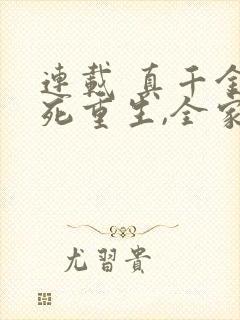 連載 真千金
死重生,全家
尤習貴